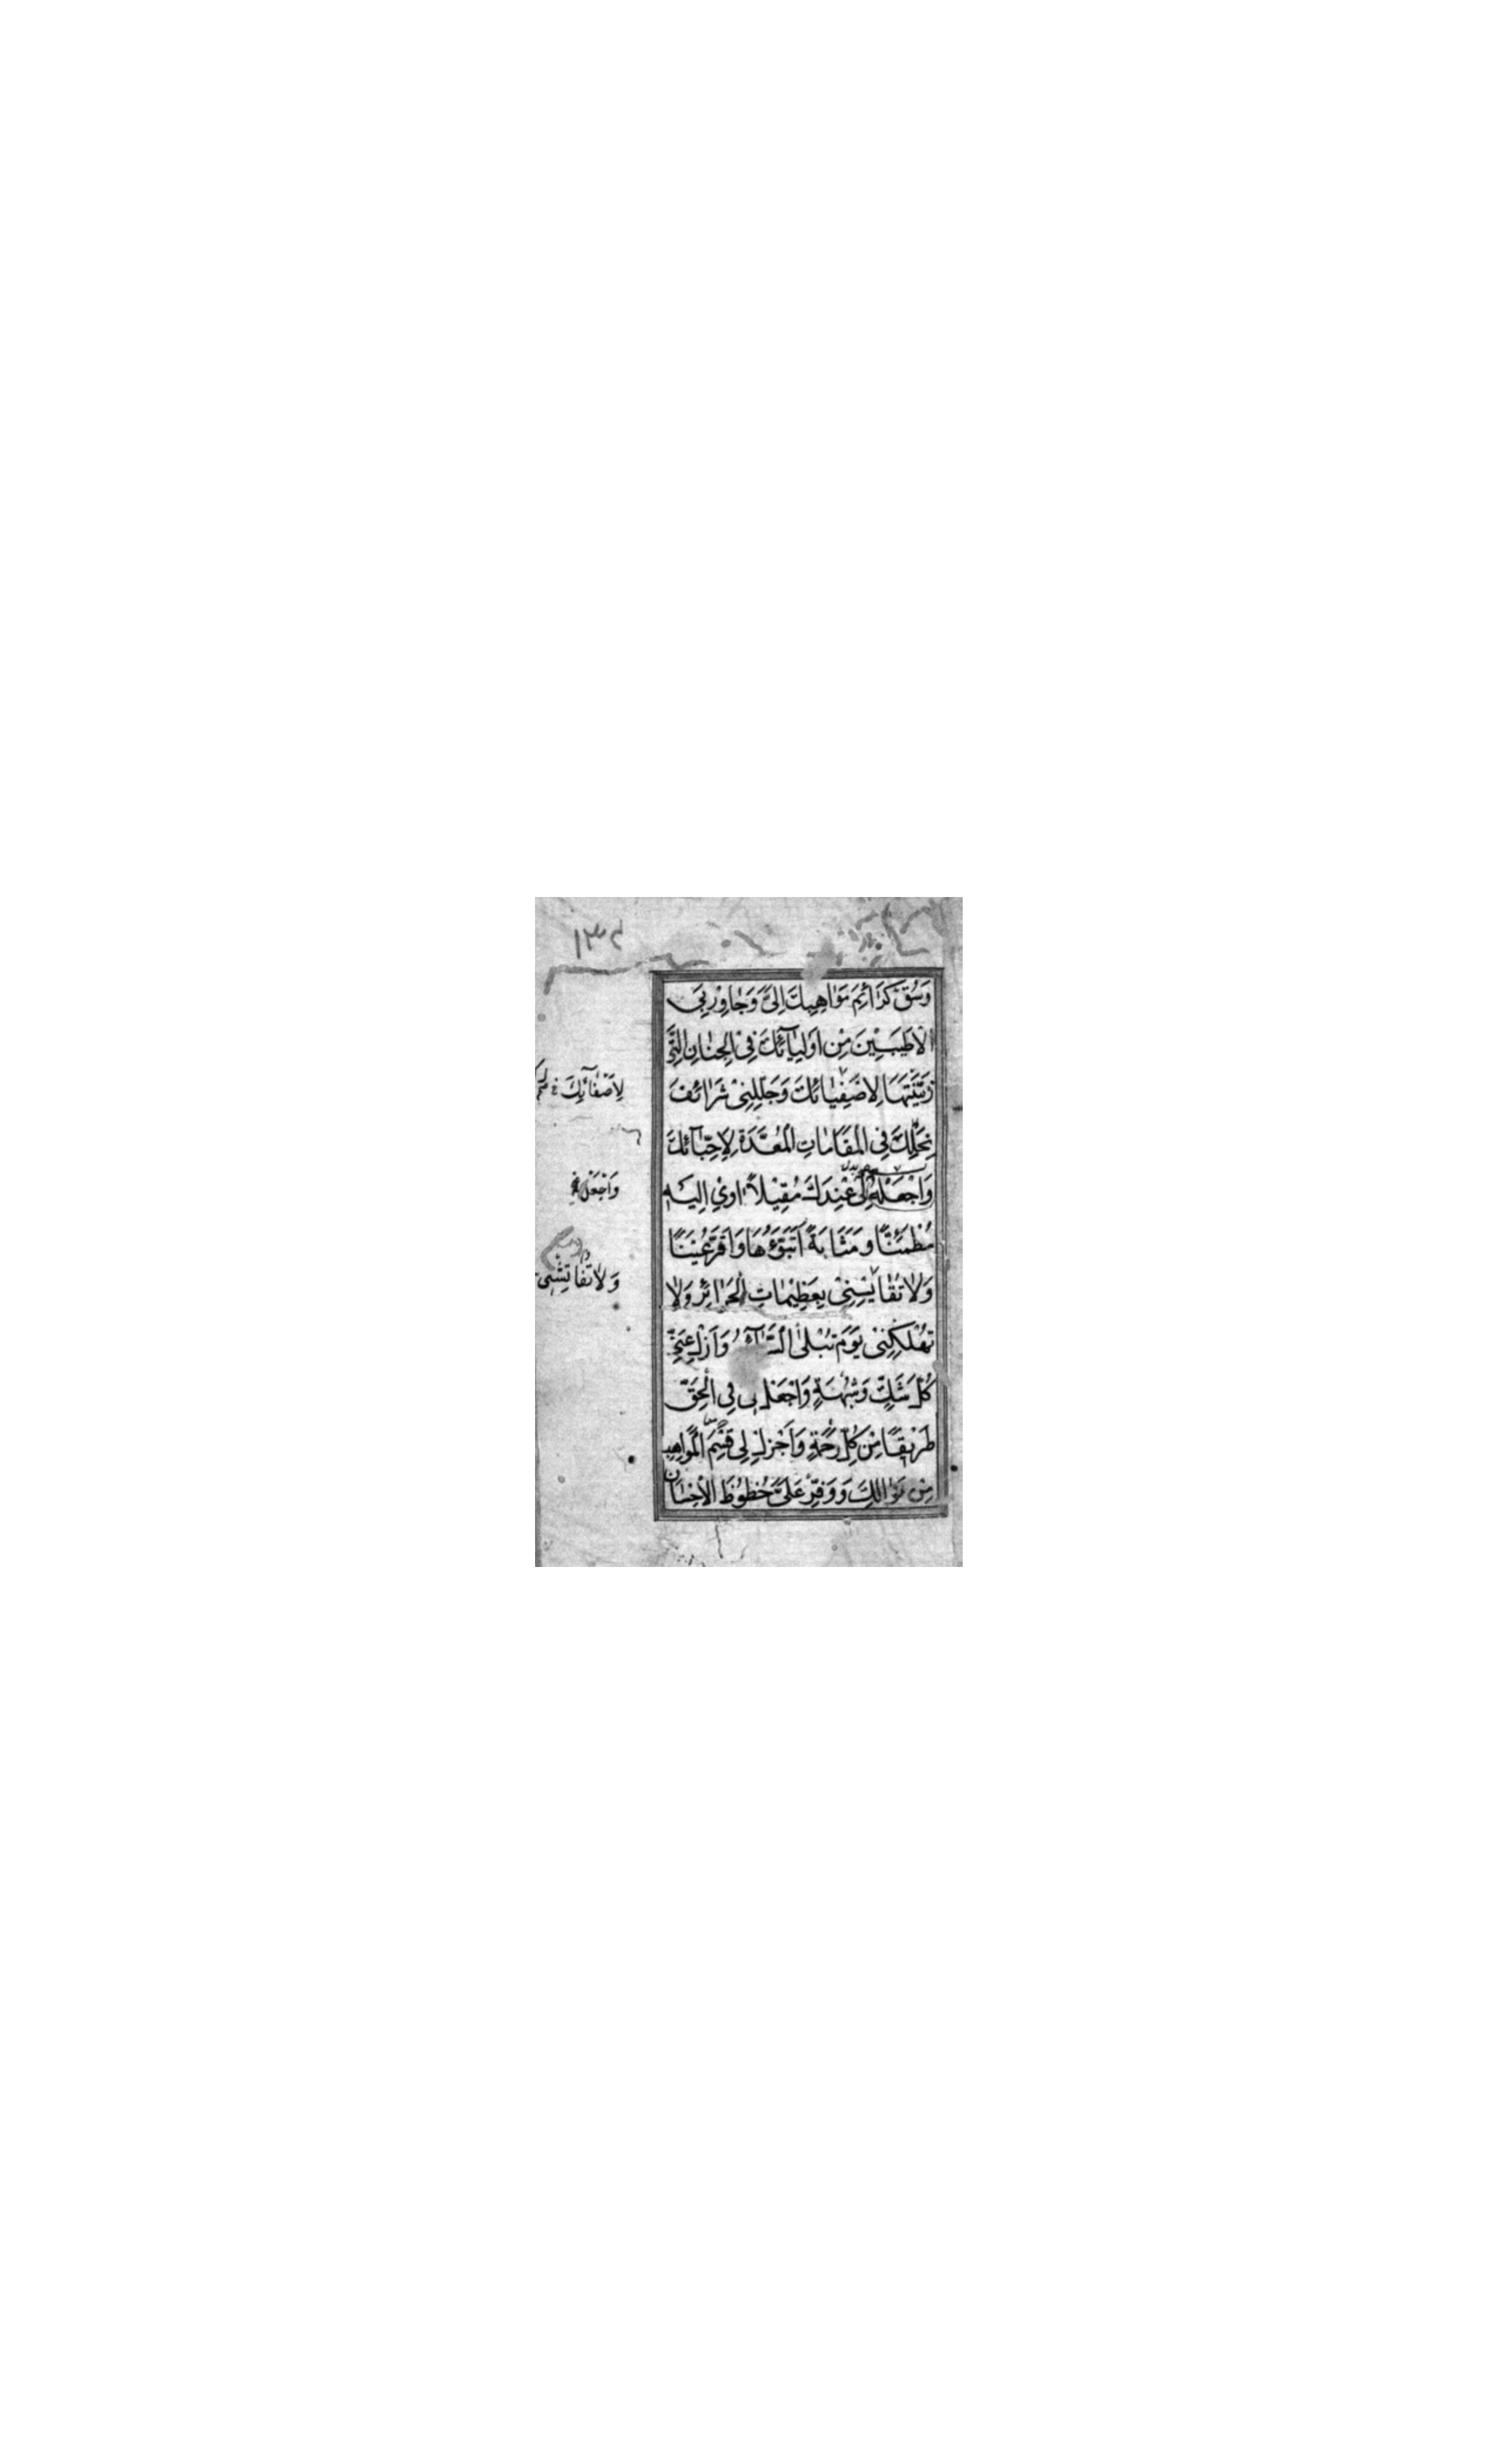 ١٣٤
وَسُقْ كَرَائِمَ مَوَاهِبِكَ اِلَیَّ وَجَاوِرْ بِیَ
الْاَطْيَبِيْنَ مِنْ اَوْلِيَآئِكَ فِی الْجِنَانِ الَّتِیْ
زَيَّنْتَهَا لِاَصْفِيَائِكَ وَجَلِّلْنِیْ شَرَائِفَ
نِحَلِكَ فِی الْمَقَامَاتِ الْمُعَدَّةِ لِاَحِبَّآئِكَ
وَاجْعَلْ لِیْ عِنْدَكَ مَقِيْلاً اٰوِیْ اِلَيْهِ
مُطْمَئِنًّا وَمَثَابَةً اَتَبَوَّءُهَا وَاَقَرُّ عَيْنًا
وَلَا تُقَايِسْنِیْ بِعَظِيْمَاتِ الْجَرَائِرِ وَلَا
تُهْلِكْنِیْ يَوْمَ تُبْلَی السَّرَآئِرُ وَاَزِلْ عَنِّیْ
كُلَّ شَكٍّ وَشُبْهَةٍ وَاجْعَلْ لِی فِی الْحَقِّ
طَرِيْقًا مِنْ كُلِّ رَحْمَةٍ وَاَجْزِلْ لِی قِسَمَ الْمَوَاهِبِ
مِنْ نَوَالِكَ وَوَفِّرْ عَلَیَّ حُظُوْظَ الْاِحْسَانِ
لِاَصْفِيَآئِكَ
وَاجْعَلْ
وَلَا تُفَاتِشْنِی